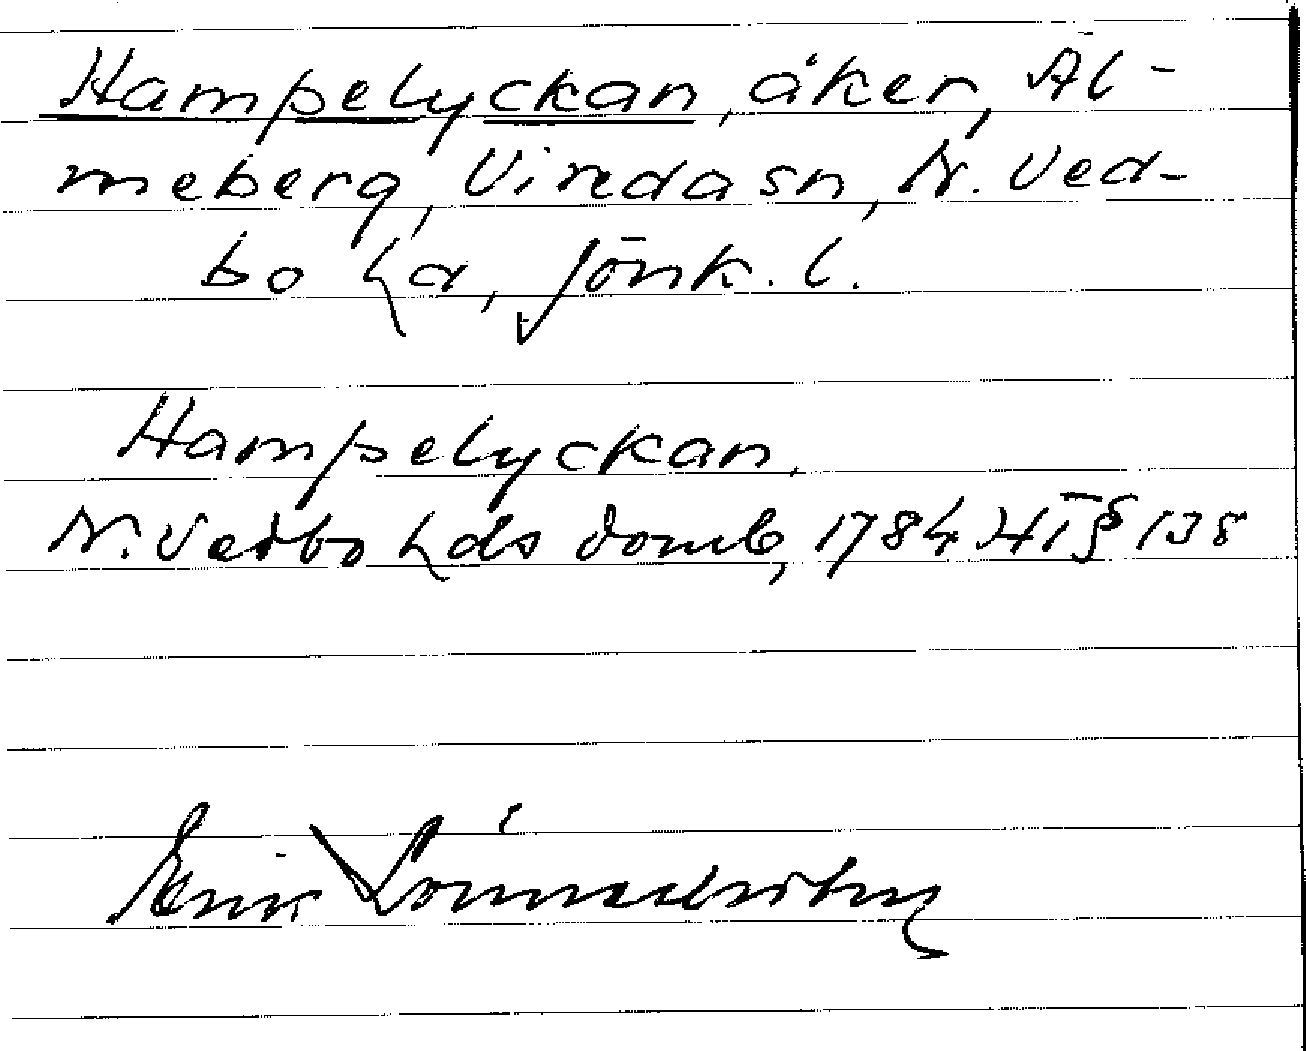 Hampelyckan, åker, Al-
meberg, Viredasn, N. Ved-
bo hd, Jönk. l.
Hampelyckan.
N. Vedbo hds domb, 1784 HT § 138
Erik